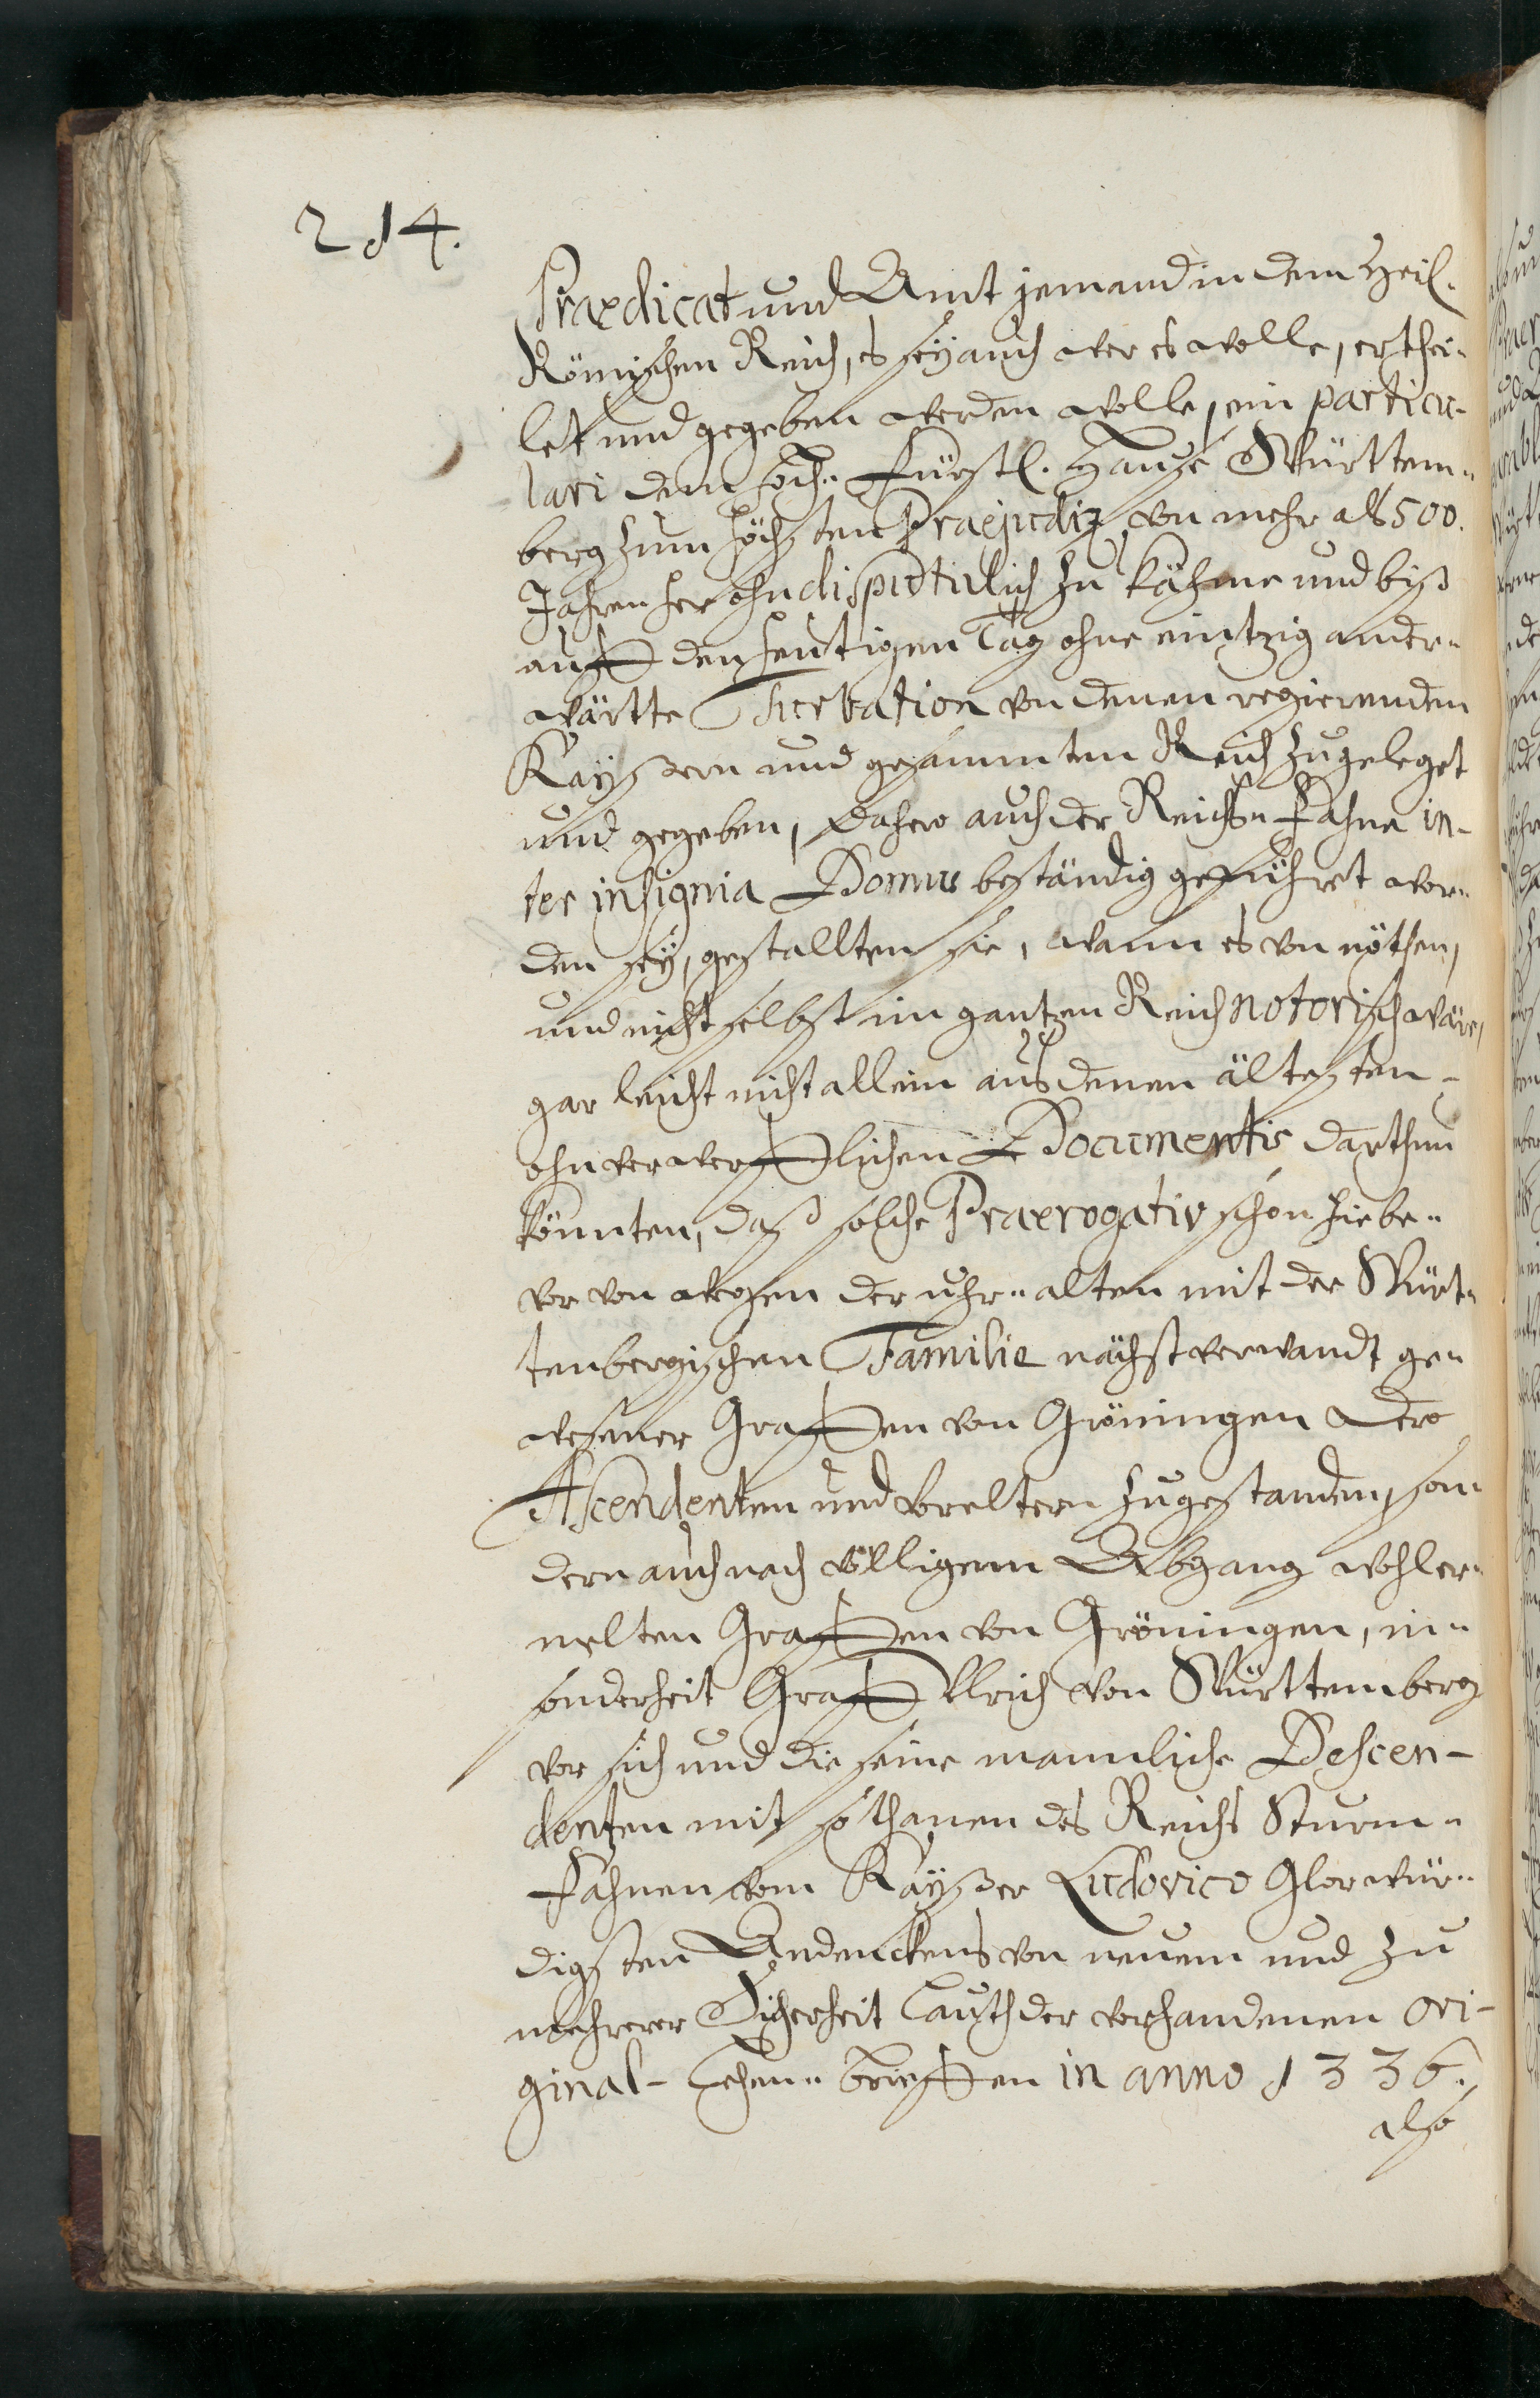 214.
Praedicat und Amt jemand in dem Heil.
Römischen Reich, es sey auch wer es wolle, erthei„
let und gegeben werden wolle, ein particu-
lari dem hoch„ Fürstl. Hauße Württem„
berg zum höchsten Praejudiz, von mehr als 500.
Jahren her ohndisputirlich zu käme und biß
auff den heutigen Tag ohne eintzig ander„
wärtte Turbation von denen regierenden
Kayßern und gesammten Reich zugeleget
und gegeben, Dahero auch der Reichs„ Fahne in-
ter insignia Domus beständig geführet wor„
den sey, gestallten sie, wann es von nöthen,
und nicht selbst im gantzen Reich notorisch wäre,
gar leicht nicht allein aus denen ältesten -
ohnverwerfflichen Documentis darthun
könnten, daß solche Praerogativ schon hiebe„
vor von wegen der uhr„ alten mit der Würt„
tenbergischen Familie nächstverwandt ge„
wesener Graffen von Gröningen Dero
Ascendenten und Vreltern zugestanden, son
dern auch nach völligem Abgang wohler„
melten Graffen von Gröningen, in„
sonderheit Graff Ulrich von Württemberg
vor sich und die seine mannliche Descen-
denten mit so thanen des Reichs Sturm„
Fahnen vom Kayßer Ludovico Glorwür„
digsten Andenckens von neuem und zu
mehrerer Sicherheit Lauth der vorhandenen Ori-
ginal- Lehen„ brieffen in anno 1336.
also